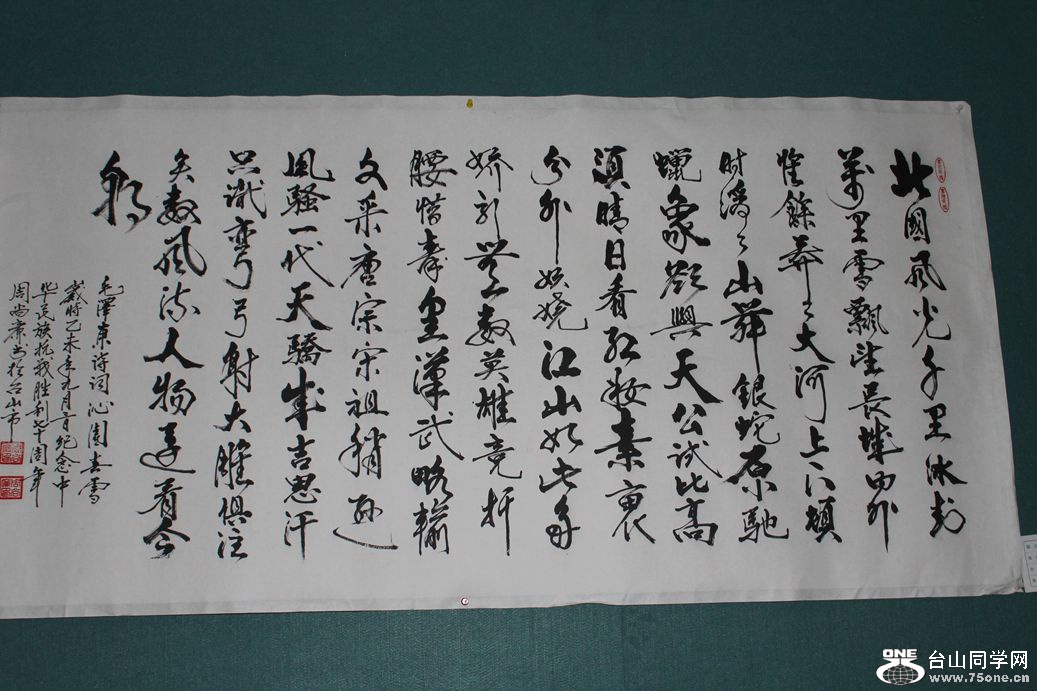 北國風光千里冰封
萬里雪飄望長城内外
惟餘莽々大河上下頓
时滔々山舞銀蛇原馳
蠟象欲與天公試比高
須晴日看红妝素裹
分外妖娆江山如此多
娇引無数英雄竞折
腰惜秦皇漢武略輸
文采唐宗宋祖稍逊
風騷一代天驕成吉思汗
只識彎弓射大雕俱往
矣数風流人物还看今
朝
毛澤東诗词沁園春雪
歲時乙未年九月三日纪念中
华民族抗战胜利七十周年
周尚肃书於台山市
ONE
台山同学网
www.75one.cn